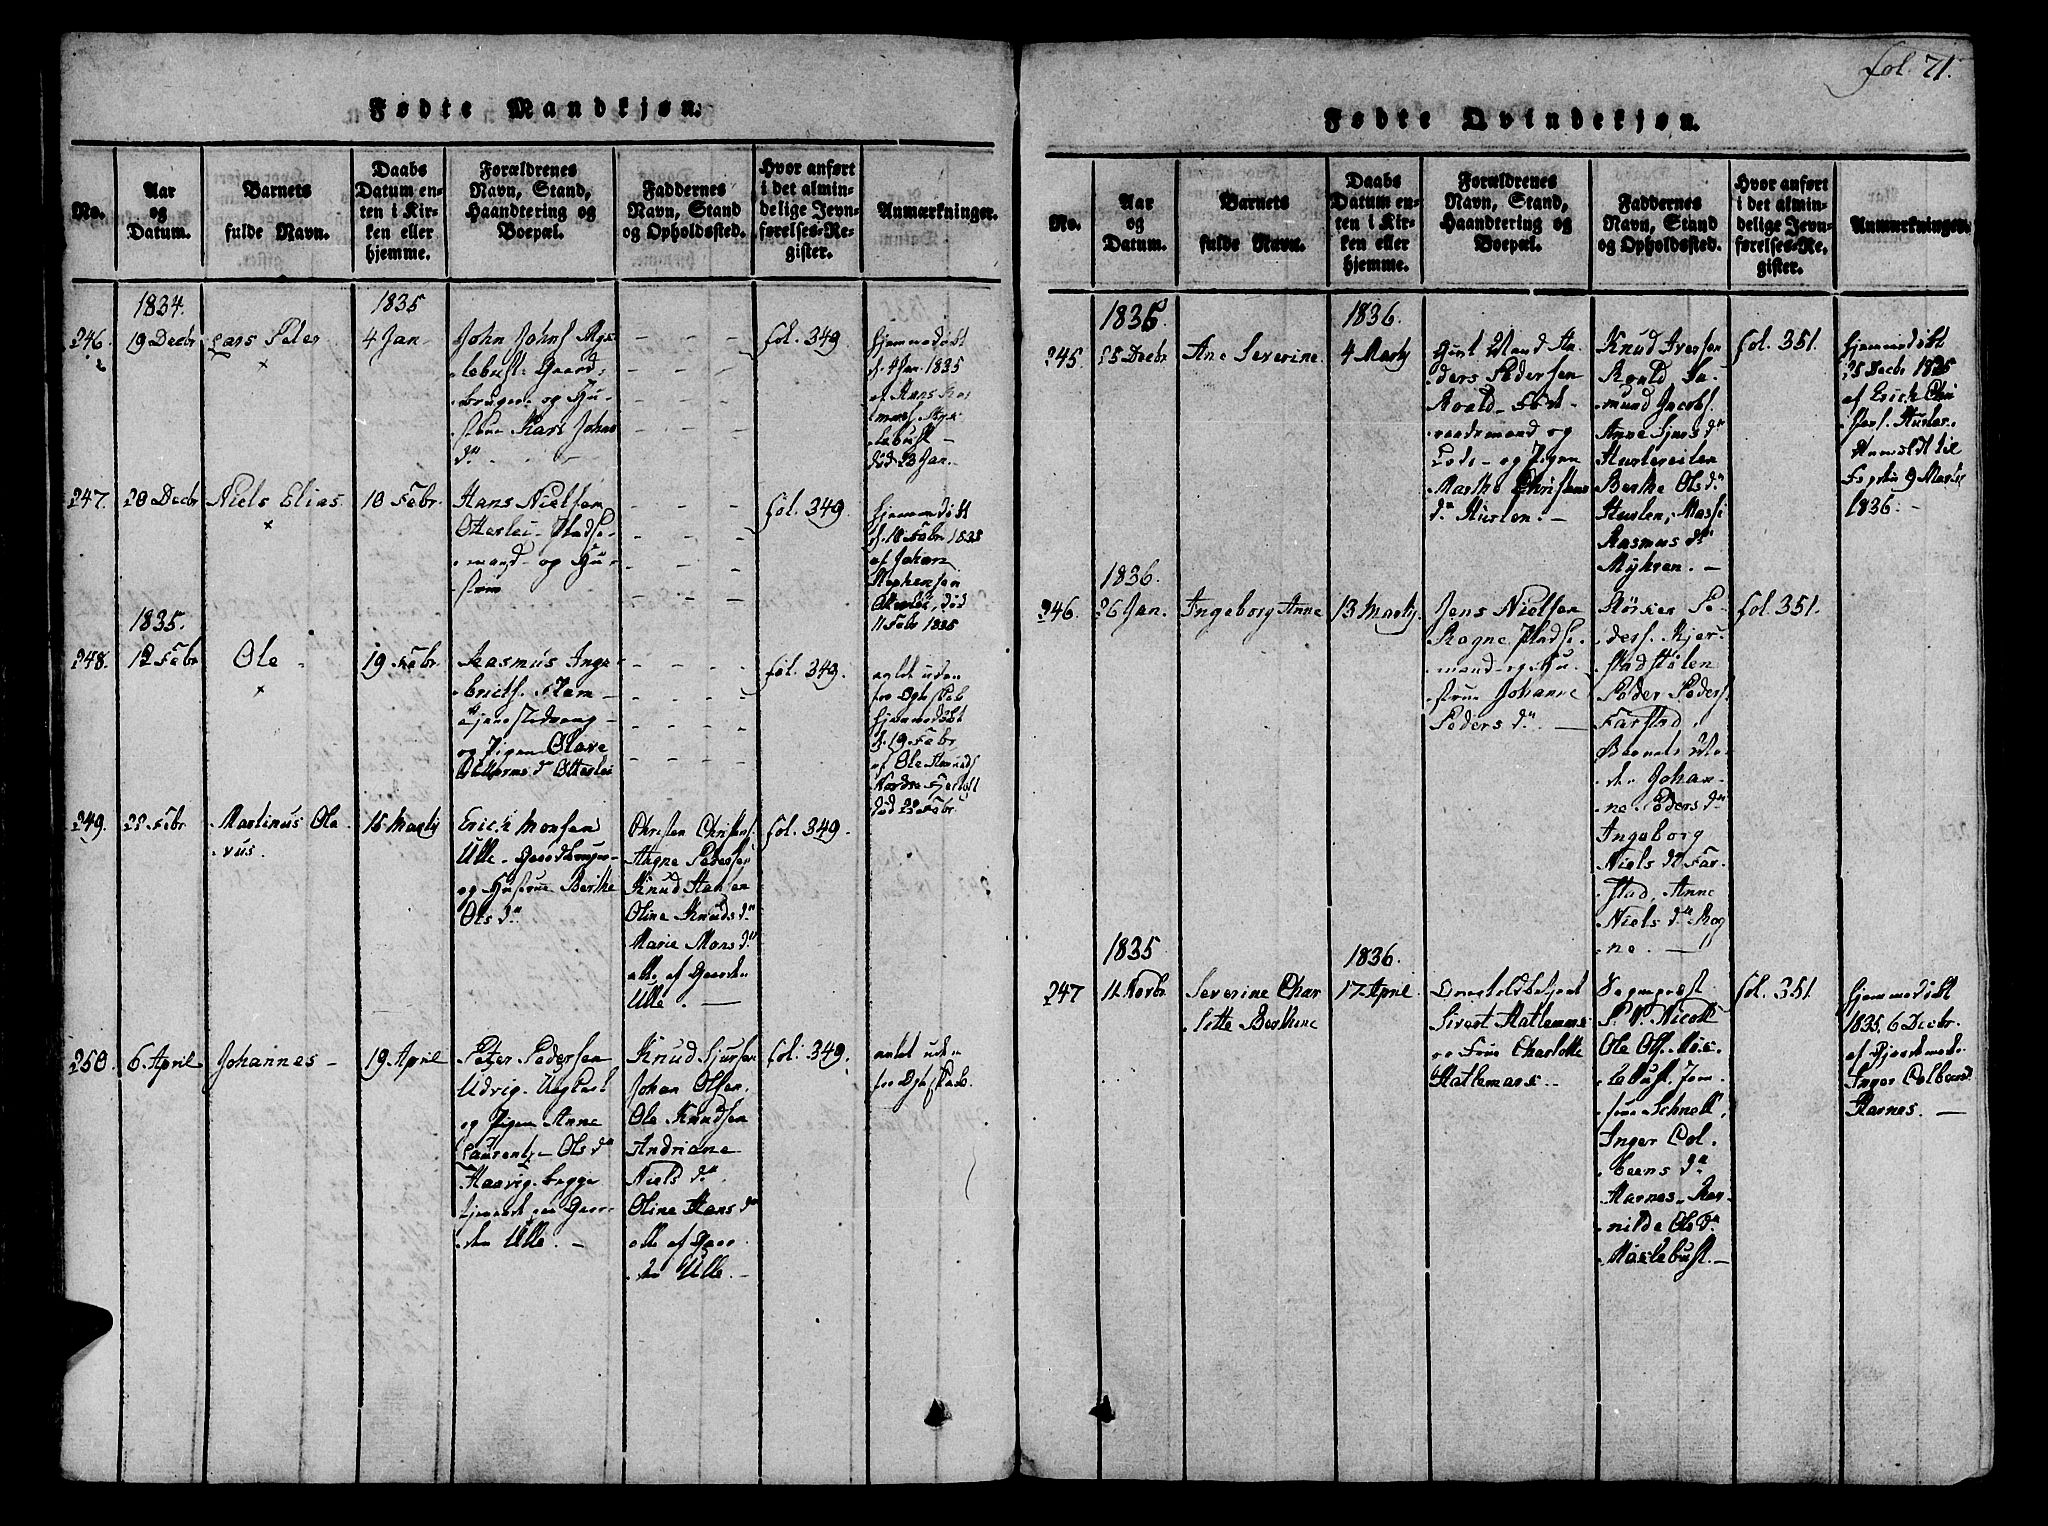 fol. 71.
Fødte Mandkjøn.
No.
Aar
og
Datum.
Barnets
fulde Navn.
Daabs
Datum en-
ten i Kir-
ken eller
hjemme.
Forældrenes
Navn, Stand,
Haandtering og
Boepæl.
Faddernes
Navn, Stand
og Opholdssted.
Hvor anført
i det almin-
delige Jevn-
førelses-Re-
gister.
Anmærkninger.
246.
1834.
19 Decbr
Lars Peter
1835
4 Jan
John Johns
Gaard-
bruger og Hu-
strue Kari Johns
dr
fol. 349
hjemmedøbt
d. 4 Jan. 1835
af Hans
død 23 Jan.
247.
28 Decbr
Niels Elias
18 Febr.
Hans Nielsen
Otterlei Pladse-
mand og Hu-
strue
fol. 349.
hjemmedøbt
d. 18 Febr. 1835
af Johan
Stephensen
Otterlei, død
11 Febr 1835
248.
1835.
12 Febr
Ole
19 Febr.
Rasmus Inge-
brigts. Flem
og Pigen Olave
dr Otterlei
fol. 349.
avlet uden
for Egteskab
hjemmedøbt
d. 19 Febr
af Ole
Nordre Fjørtoft
død 22 Febr
249.
22 Febr
Martinus Ola
vus.
15 Martz
Erich Monsen
Ulle Gaardbruger
og Hustrue Berthe
Ols dr
Christen Christens.
Aagne Pedersen
Knud Hansen
Oline Knuds dr
Marie Mons dr
alle af Gaarden
Ulle.
fol. 349.
250.
6 April
Johannes
19 April
Peter Pedersen
Udvig. Ungkarl
og Pigen Anne
Laurentze Ols dr
Haavig begge
tjenende paa Gaar-
den Ulle.
Knud Sjursen
Johan Olsen.
Ole Knudsen
Andriane
Niels dr.
Oline Hans dr
alle af Gaar
den Ulle.
fol. 349.
avlet uden
for Egteskab.
Fødte Qvindekjøn.
No.
Aar
og
Datum.
Barnets
fulde Navn.
Daabs
Datum en-
ten i Kir-
ken eller
hjemme.
Forældrenes
Navn, Stand,
Haandtering og
Boepæl.
Faddernes
Navn, Stand
og Opholdssted.
Hvor anført
i det almin-
delige Jevn-
førelses-Re-
gister.
Anmærkninger.
245.
1835.
25 Decbr
Ane Severine
1836.
4 Martz
An-
ders Pedersen
Roald
og
Lods og Pigen
Marthe Christens
dr Hurlen.
Knud Iversen
Roald
mund Jacobs.
Anne Sjurs dr
Berthe Ols dr
Hurlen, Masse
Rasmus dr
Myhren.
fol. 351.
hjemmedøbt
25 Decbr 1835
af Erich Chri
stofs.
Anmeldt til
9 Martz
1836.
246.
1836.
26 Jan.
Ingeborg Anne
13 Martz.
Jens Nielsen
Rogne Pladse-
mand og Hu-
strue Johanne
Peders dr
Størker Pe-
ders. Kjer-
stadstølen
Peder Peders.
Farstad.
Barnets Mo-
der Johan-
ne Peders dr
Ingeborg
Niels dr Far-
stad, Anne
Niels dr Rog
ne.
fol. 351.
247
1835
11 Novbr.
Severine Char
lotte Berthine
1836.
17 April
Sivert Hatlemark
og Frue Charlotte
Hatlemark.
Sognepræst
Ole Ols. Møk-
lebust, Jom-
frue Schnell,
Inger Col-
beens dr
Harnes, Rag-
nilde Ols dr
Møklebust.
fol. 351.
hjemmedøbt
1835. 6 Decbr.
af Gjordemoder
Inger Colbeensd.
Harnes.